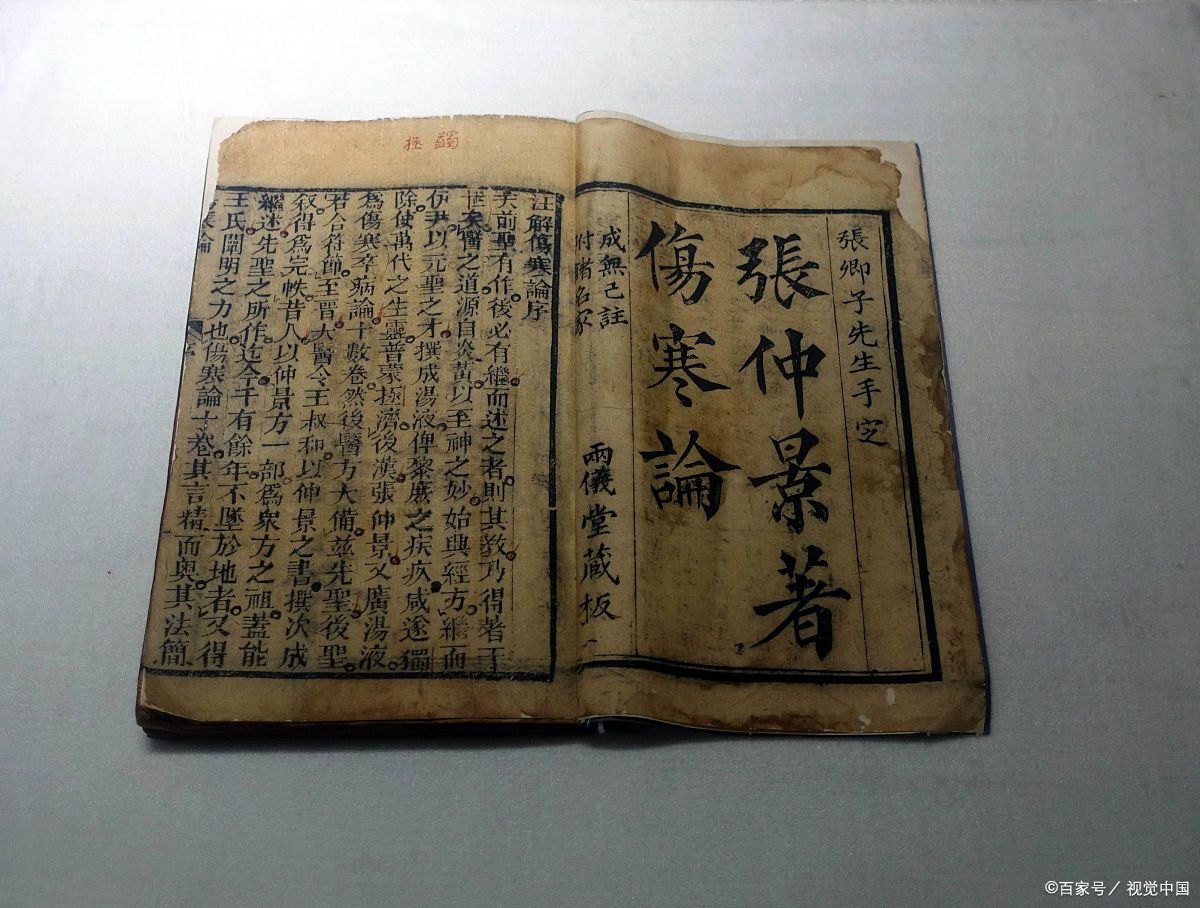 張卿子先生手定
張仲景著
傷寒論
成無己註
附諸名家
兩儀堂蔵板
拯 蠲
注解傷寒論序
夫前聖有作後必有繼而述之者則其教乃得著于
世矣醫之道源自炎黄以至神之妙始興經方繼而
伊尹以元聖之才撰成湯液俾黎庶之疾疚咸遂蠲
除使萬代之生靈普蒙拯濟後漢張仲景又廣湯液
爲傷寒卒病論十數卷然後醫方大備茲先聖後聖
若合符節至晋太醫令王叔和以仲景之書撰次成
叙得爲完帙昔人以仲景方一部爲衆方之祖蓋能
繼述先聖之所作迄今千有餘年不墜於地者又得
王氏闡明之力也傷寒論十卷其言精而奥其法簡
©百家号／视觉中国